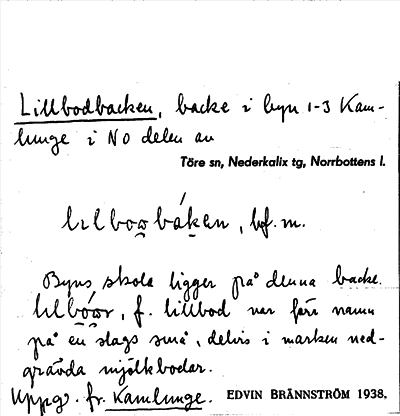 Lillbodbacken, backe i byn 1-3 Kam-
lunge i NO delen av
Töre sn, Nederkalix tg, Norrbottens l.
bf. m.
Byns skola ligger på denna backe.
f. lillbod var förr namn
på en slags små, delvis i marken ned-
grävda mjölkbodar.
Uppg. fr. Kamlunge. EDVIN BRÄNNSTRÖM 1938.